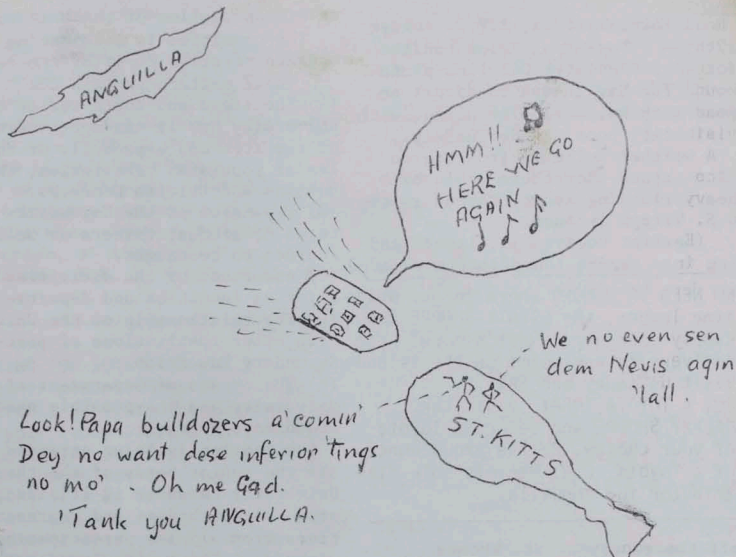 ANGUILLA
HMM!!
HERE WE GO
AGAIN
We no even sen
dem Nevis agin
'lall.
Look! Papa bulldozers a'comin'
Dey no want dese inferior 'tings
no mo'. Oh me Gad.
'Tank you ANGUILLA.
ST. KITTS